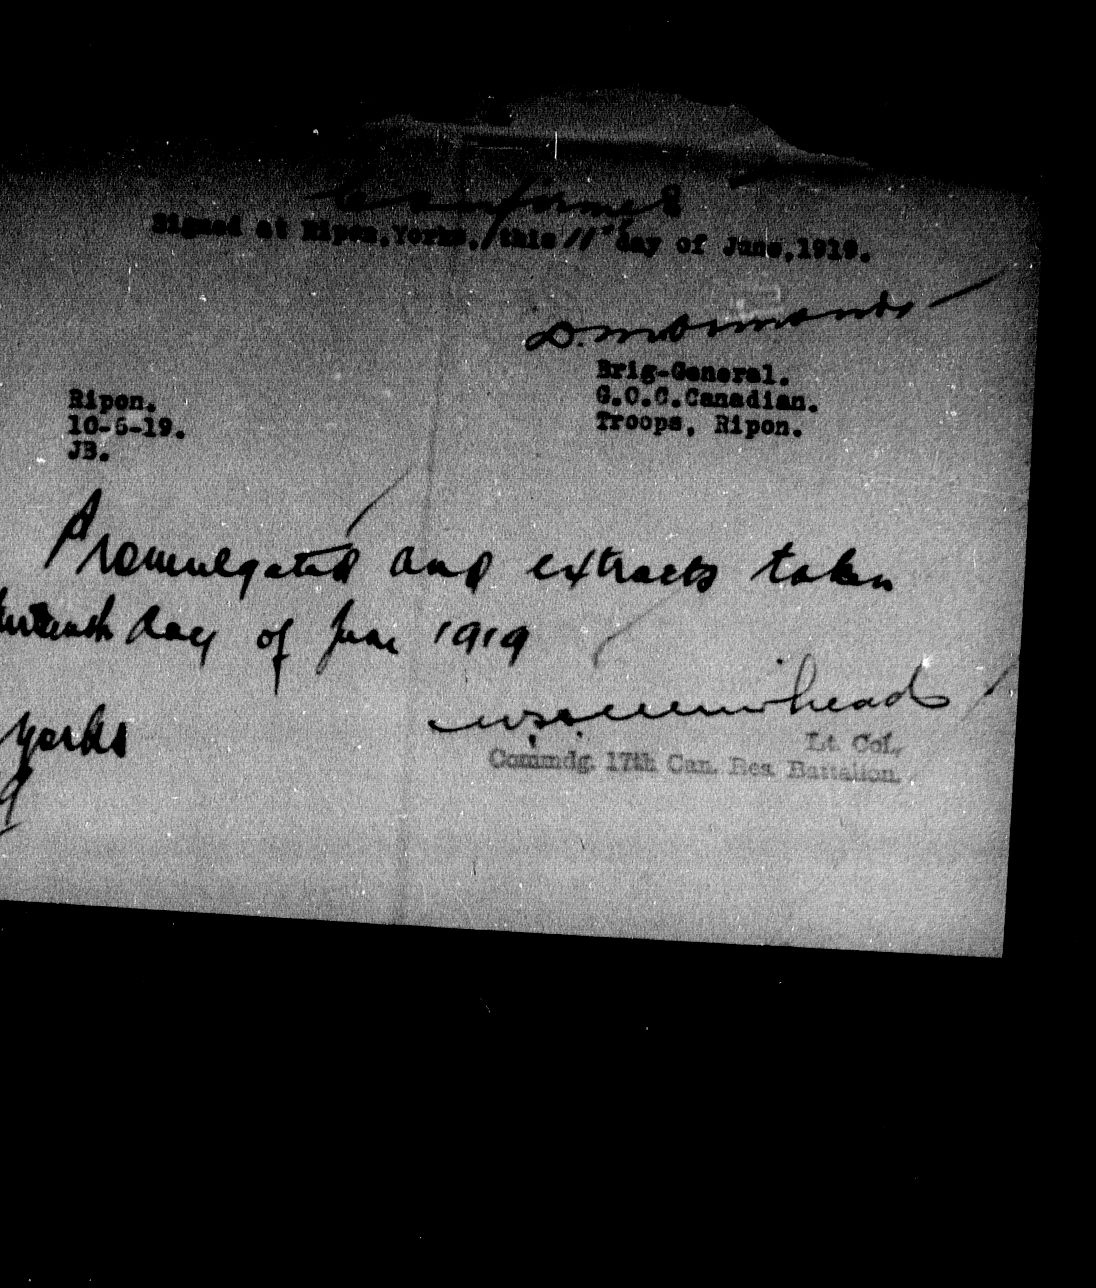 Confirmed
Signed at Ripon,Yorks, this 11th day of June,1919.
Brig-General.
G.O.C.Canadian.
Troops, Ripon.
Ripon.
10-6-19.
JB.
Promulgated and extracts taken
day of June 1919
Yorks
Lt. Col.
Commdg. 17th Can. Res. Battalion.